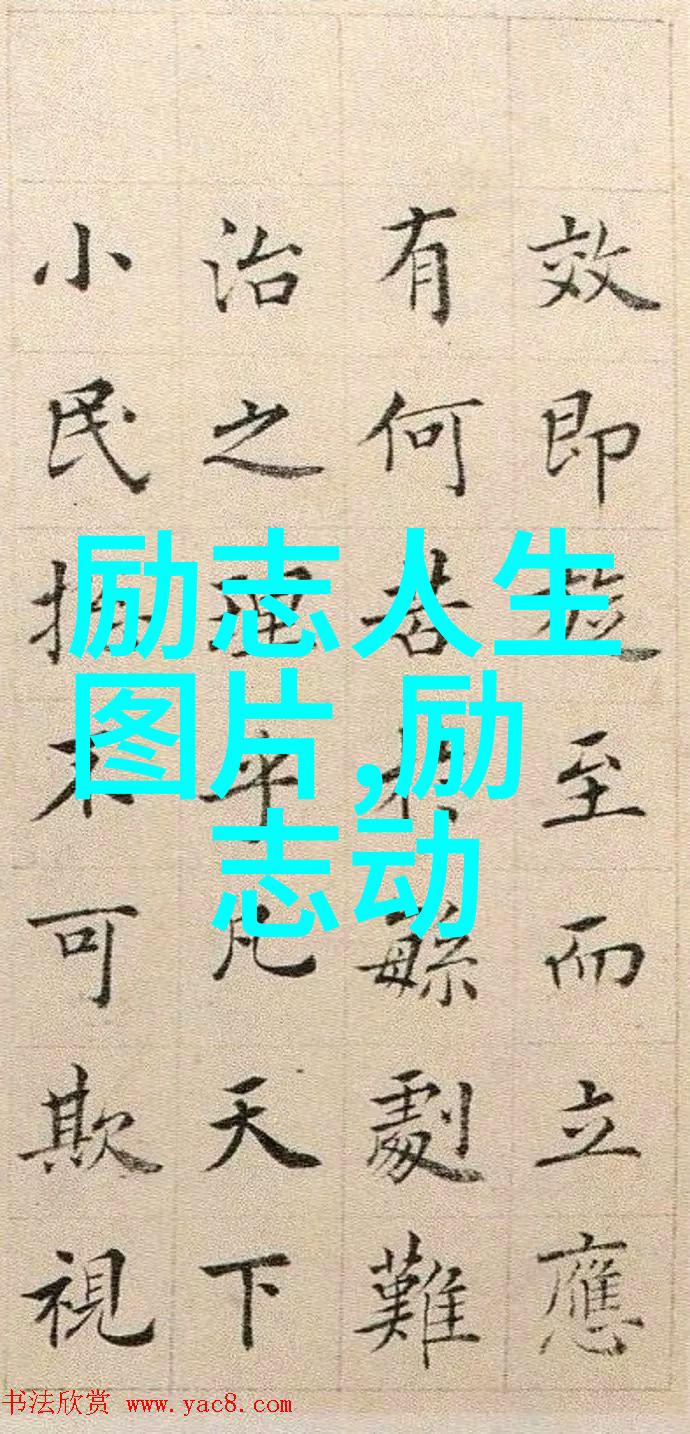 效即至而立應
有何繁劇難
治之理凡天下
小民不可欺視
励志人生
图片,励
志动
书法欣赏 www.yac8.com